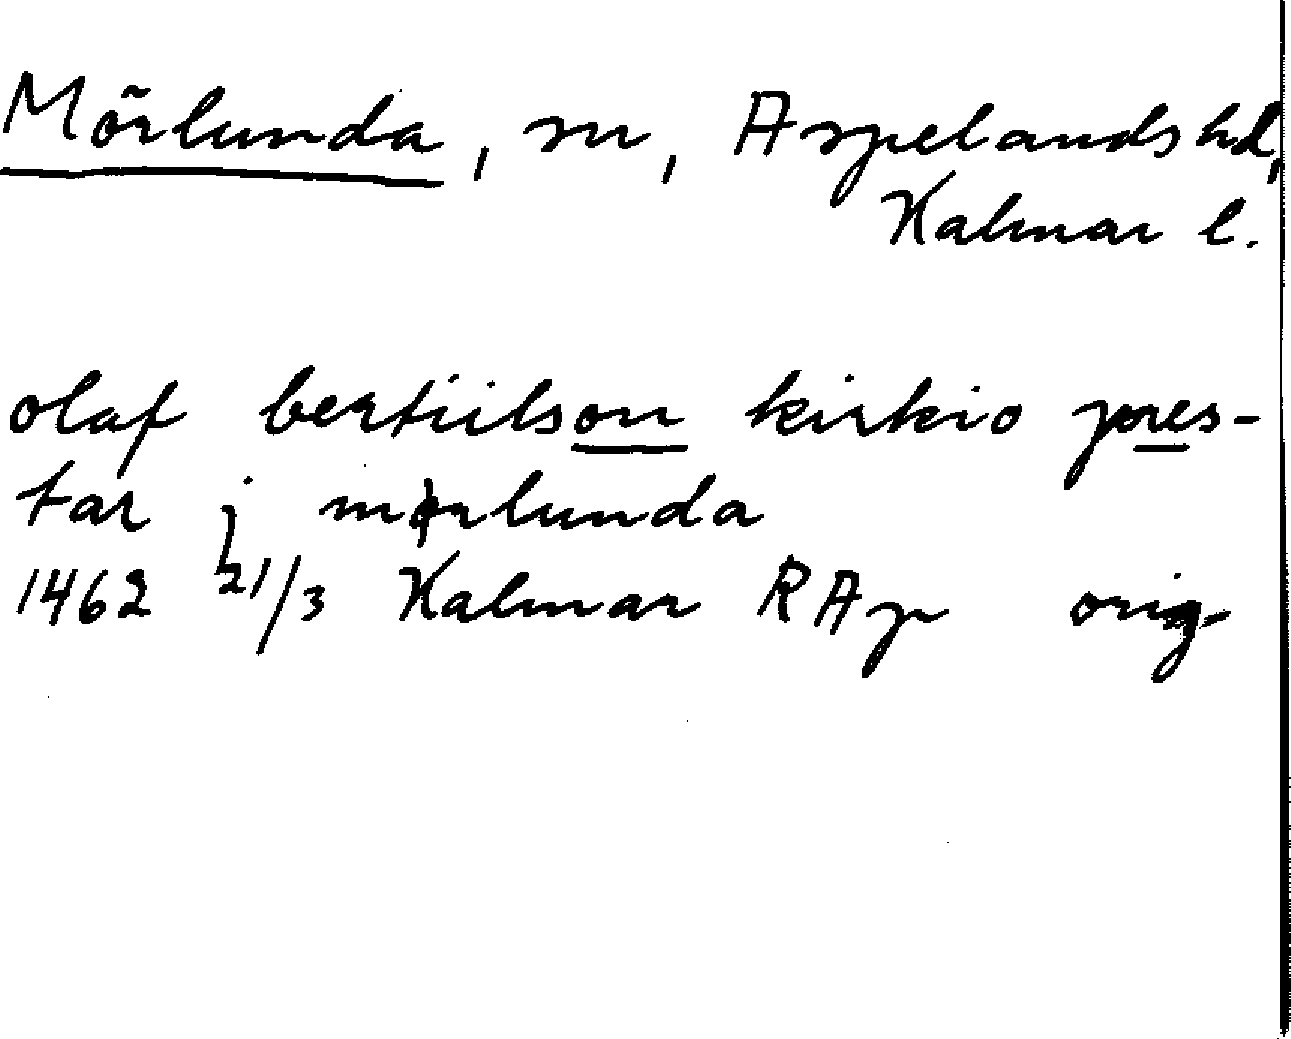 Mörlunda, sn, Aspelands hd,
Kalmar l.
olaf bertiilson kirkio pres-
tar j mørlunda
1462 21/3 Kalmar RAp orig